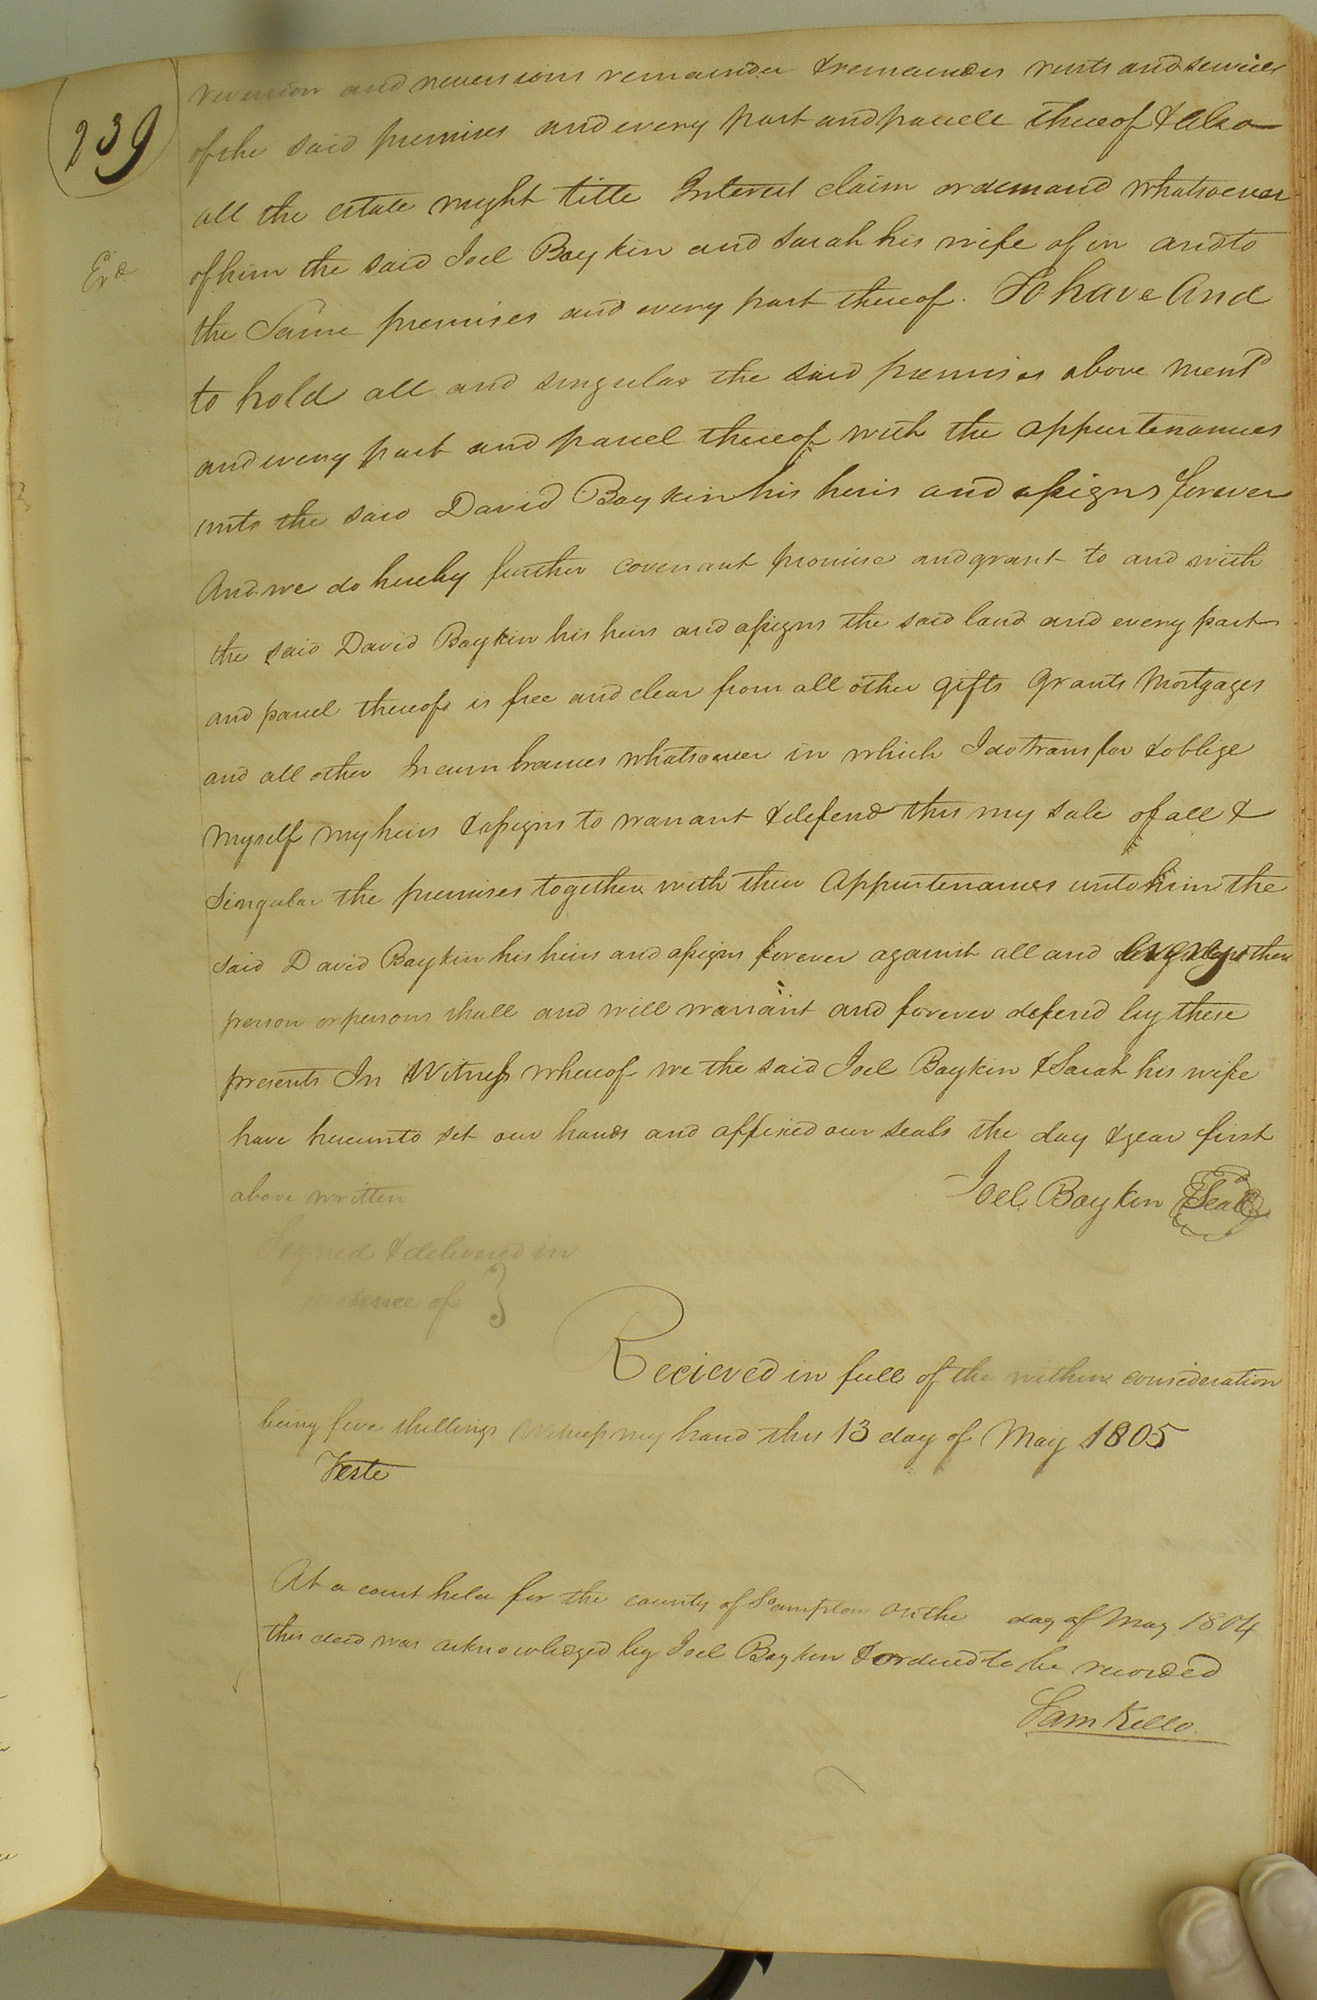 239
Ex^d
reversion and reversions remainder & remainders rents and services
of the said premises and every part and parcele thereof & Also
all the estate right title Interest claim or demand whatsoever
of him the said Joel Boykin and Sarah his wife of in and to
the Same premises and every part thereof. To have And
to hold all and singular the said premises above ment^d
and every part and parcel thereof with the appurtenances
unto the said David Boykin his heirs and assigns forever
And we do hereby further covenant promise and grant to and with
the said David Boykin his heirs and assigns the said land and every part
and parcel thereof is free and clear from all other gifts Grants Mortgages
and all other Incumbrances whatsoever in which I do transfer & oblige
myself my heirs & assigns to warrant & defend this my sale of all &
Singular the premises together with their Appurtenances unto him the
said David Boykin his heirs and assigns forever against all and every other
person or persons shall and will warrant and forever defend by these
presents In Witness whereof we the said Joel Boykin & Sarah his wife
have hereunto set our hands and affixed our seals the day & year first
above written
Joel Boykin Seal
Signed & delivered in
presence of }
Recieved in full of the within consideration
being five shillings Witness my hand this 13 day of May 1805
Teste
At a court held for the county of Sampton on the day of May 1804
this deed was acknowledged by Joel Boykin & ordered to be recorded
Sam Kello.